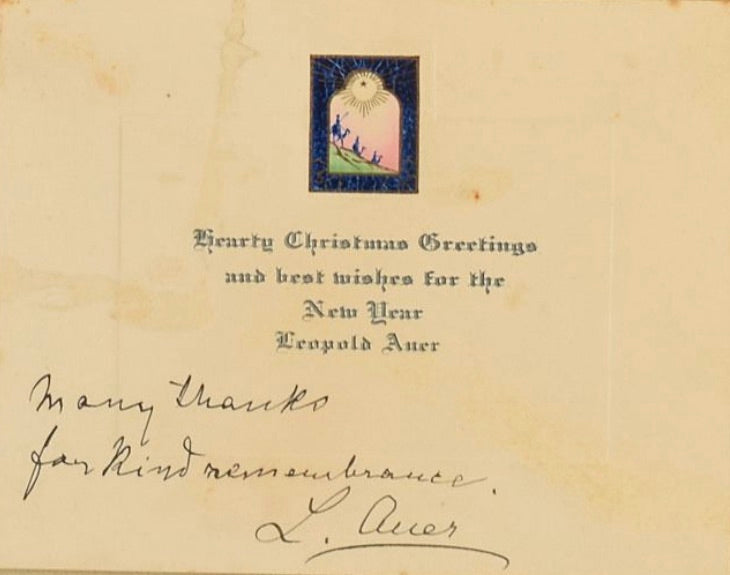 Hearty Christmas Greetings
and best wishes for the
New Year
Leopold Auer
Many thanks
for kind remembrance.
L. Auer